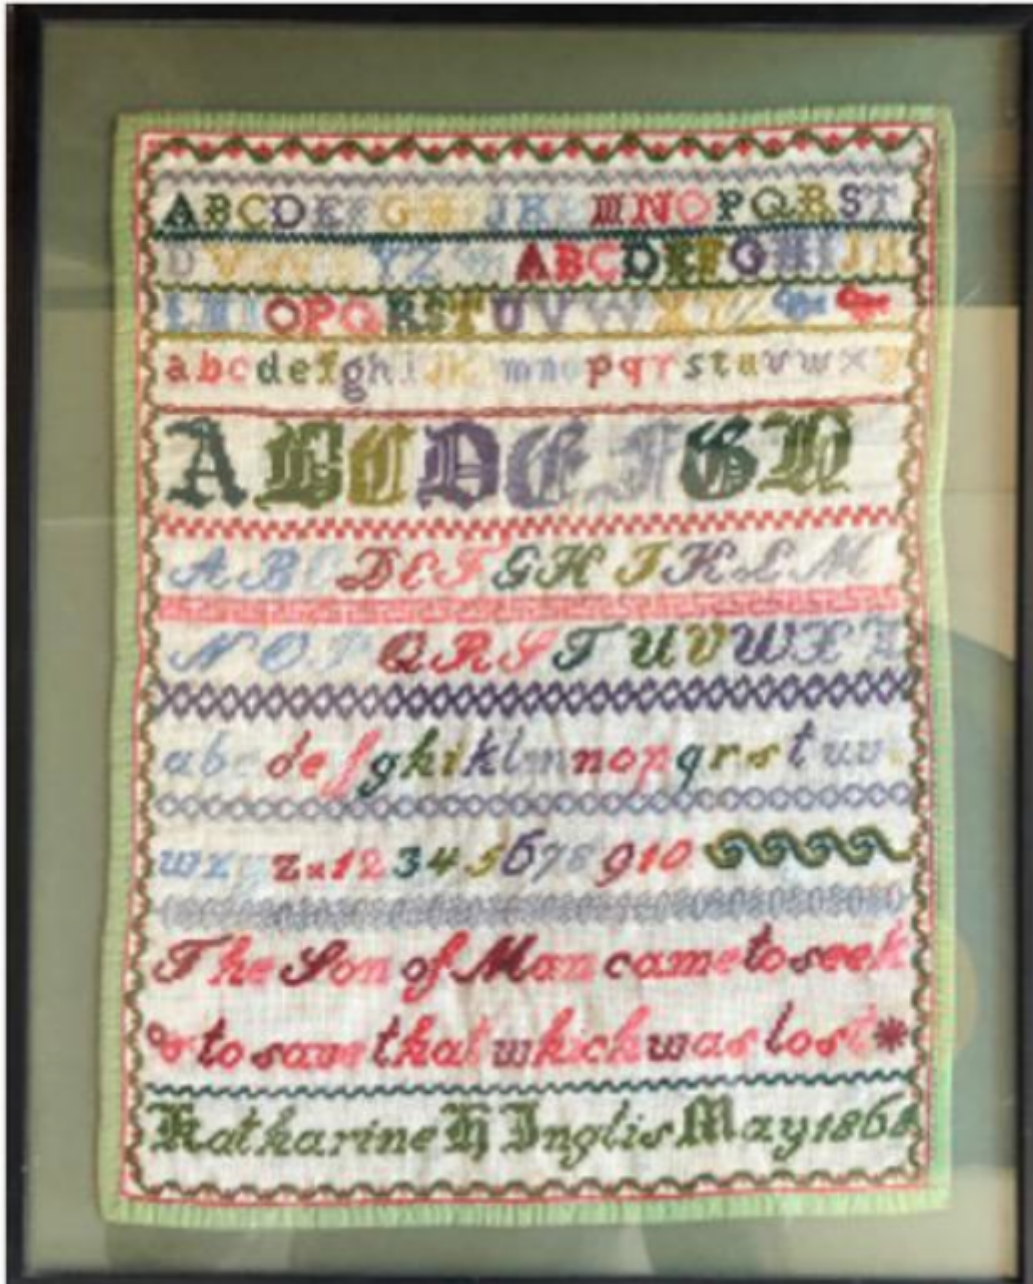 ABCDEFGHIJKLMNOPQRST
UVWXYZ ABCDEFGHIJK
LMNOPQRSTUVWXYZ
abcdefghijklmnopqrstuvwxy
ABCDEFGH
ABCDEFGHIKLM
NOPQRSTUVWX
abcdefghiklmnopqrstuv
wxyz 12345678910
The Son of Man came to seek
& to save that which was lost
Katharine H Inglis May 1868